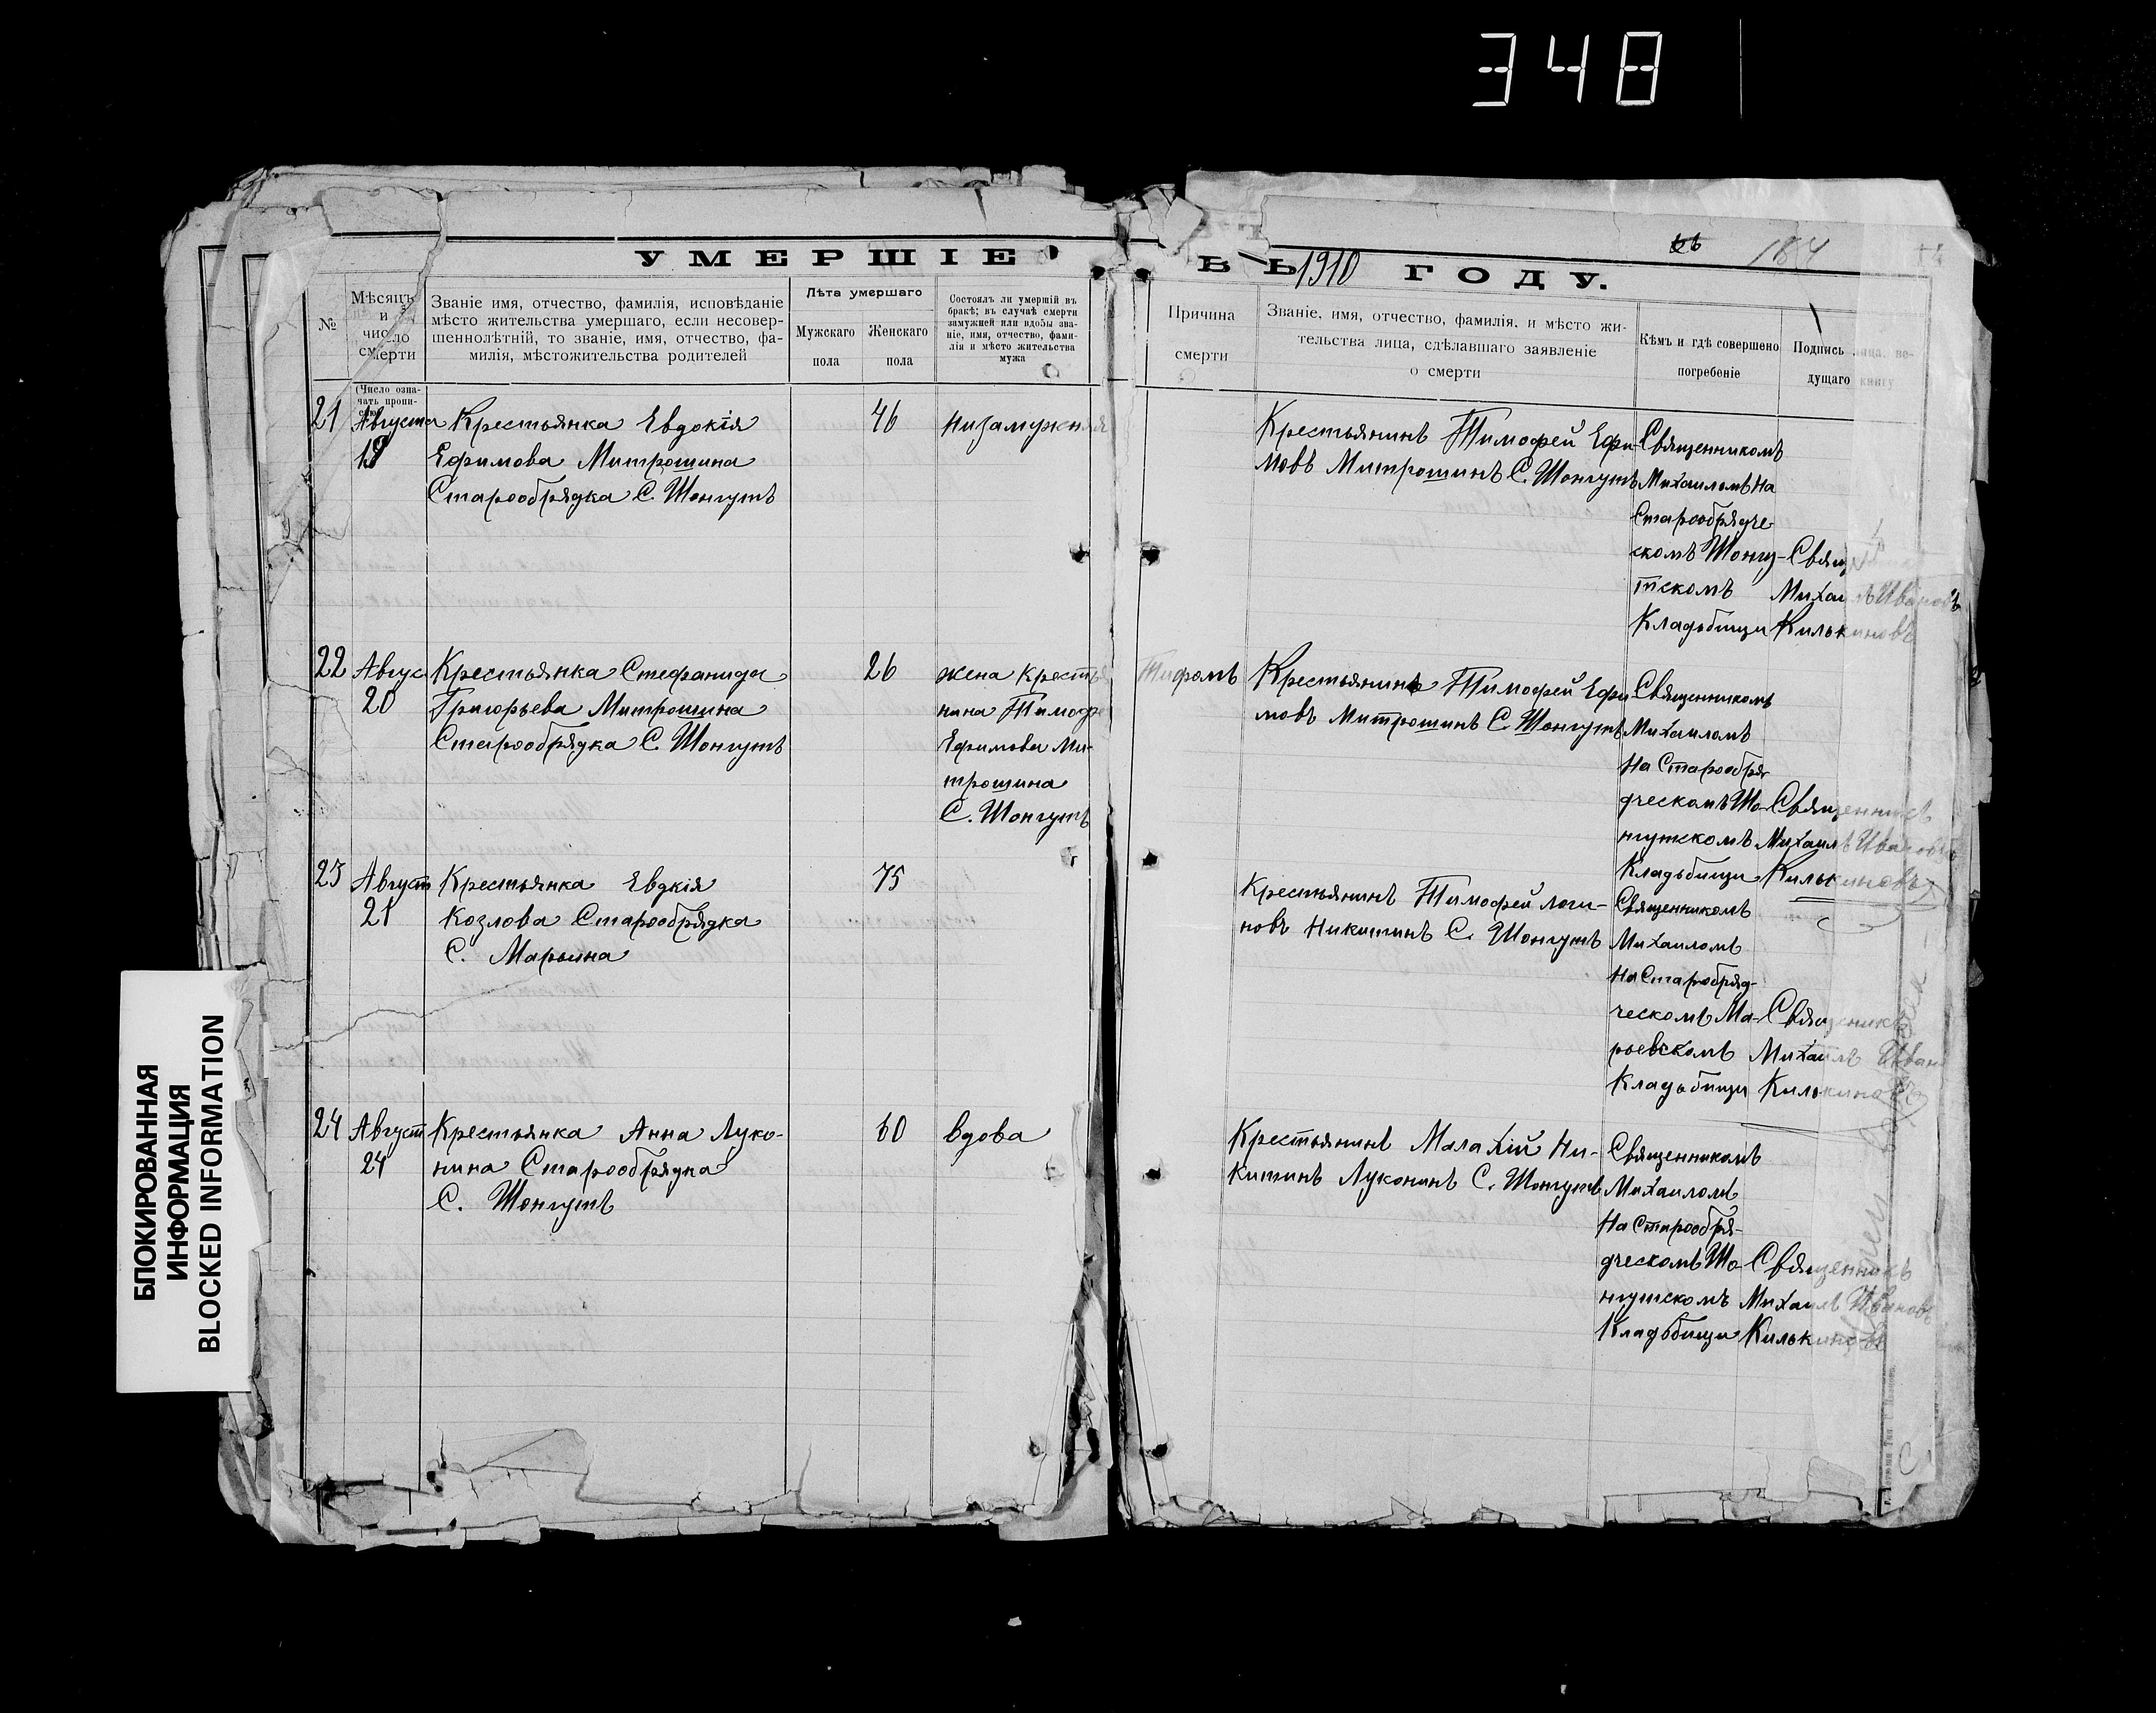 348
УМЕРШІЕ
ВЪ 1910 ГОДУ.
184
№
Мѣсяцъ
и
число
смерти
Званіе имя, отчество, фамилія, исповѣданіе
мѣсто жительства умершаго, если несовер-
шеннолѣтній, то званіе, имя, отчество, фа-
милія, мѣстожительства родителей
Лѣта умершаго
Мужскаго
пола
Женскаго
пола
Состоялъ ли умершій въ
бракѣ; въ случаѣ смерти
замужней или вдовы зва-
ніе, имя, отчество, фами-
лія и мѣсто жительства
мужа
Причина
смерти
Званіе, имя, отчество, фамилія, и мѣсто жи-
тельства лица, сдѣлавшаго заявленіе
о смерти
Кѣмъ и гдѣ совершено
погребеніе
Подпись лица, ве-
дущаго книгу
(Число озна-
чать пропи-
21
Августа
19
Крестьянка Евдокія
Ефимова Митрошина
Старообрядка С. Шонгутъ
46
Низамужняя
Крестьянинъ Тимофей Ефи-
мовъ Митрошинъ С. Шонгутъ
Священникомъ
Михаиломъ На
Старообрядче
скомъ Шонгу-
тскомъ
Кладьбищи
Свящ
Михаилъ Ивановъ
Килькиновъ
22
Авгус
20
Крестьянка Стефанида
Григорьева Митрошина
Старообрядка С. Шонгутъ
26
жена Крестья
нина Тимоф
Ефимова Ми-
трошина
С. Шонгутъ
Тифомъ
Крестьянинъ Тимофей Ефи
мовъ Митрошинъ С. Шонгутъ
Священникомъ
Михаиломъ
На Старообря
дческомъ Шо-
нгутскомъ
Кладьбищи
Священникъ
Михаилъ Ивановъ
Килькиновъ
23
Август
21
Крестьянка Евдкія
Козлова Старообрядка
С. Марьина
75
Крестьянинъ Тимофей Логи-
новъ Никитинъ С. Шонгутъ
Священникомъ
Михаиломъ
На Старобряд-
ческомъ Ма-
рьевскомъ
Кладьбищи
Священикъ
Михаилъ Иван
Килькиновъ
24
Август
24
Крестьянка Анна Луко-
нина Старообрядка
С. Шонгутъ
60
вдова
Крестьянинъ Малахій Ни-
китинъ Луконинъ С. Шонгутъ
Священникомъ
Михаиломъ
На Старообря-
дческомъ Шо-
нгутскомъ
Кладьбищи
Священникъ
Михаилъ Ивановъ
Килькиновъ
БЛОКИРОВАННАЯ
ИНФОРМАЦИЯ
BLOCKED INFORMATION